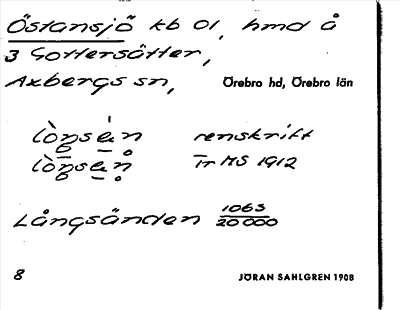 Östansjö kb 01, hmd å
3 Gottersätter,
Axbergs sn, Örebro hd, Örebro län
lòŋsèn renskrift
lòŋsen̊ Tr MS 1912
Långsänden 1063
20 000
8 JÖRAN SAHLGREN 1908